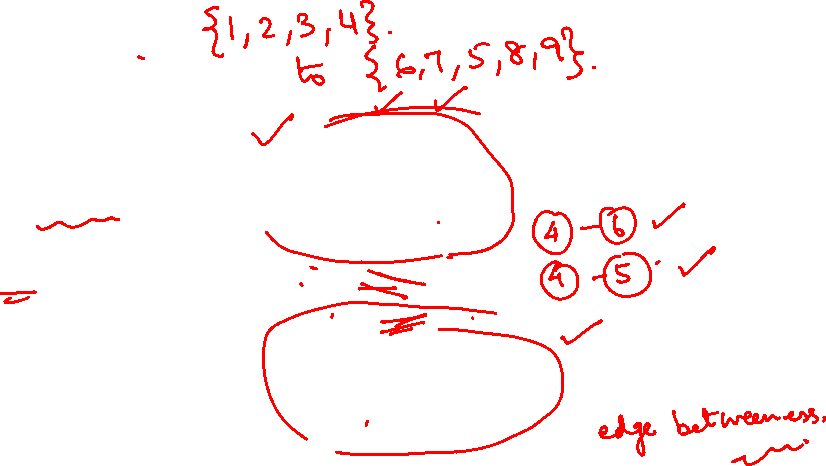 {1, 2, 3, 4}.
to {6, 7, 5, 8, 9}.
4 - 6
4 - 5
edge betweenness.